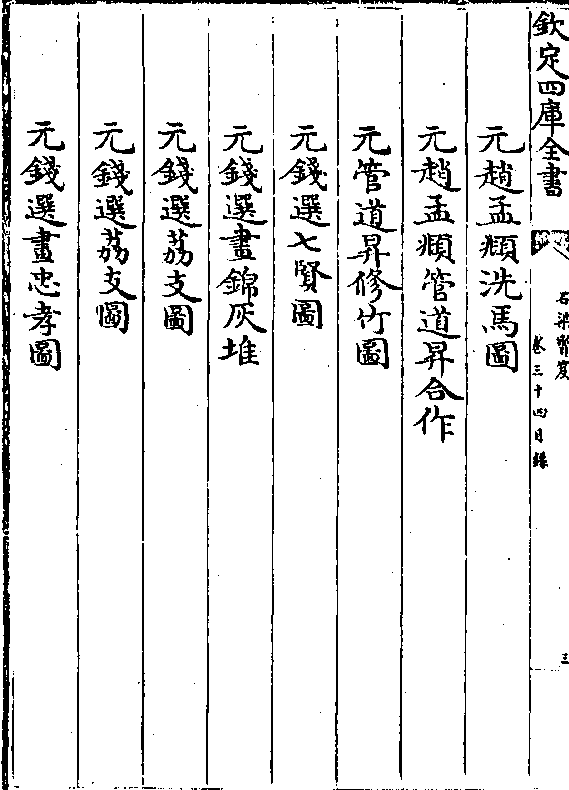 欽定四庫全書
石渠寳笈
卷三十四目錄
三
元趙孟頫洗馬圖
元趙孟頫管道昇合作
元管道昇修竹圖
元錢選七賢圖
元錢選畫錦灰堆
元錢選荔支圖
元錢選荔支圖
元錢選畫忠孝圖